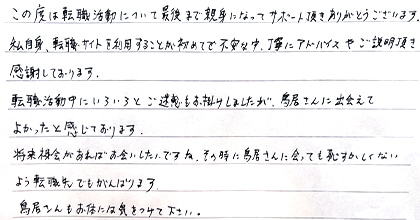 この度は転職活動について最後まで親身になってサポート頂きありがとうございます。
私自身、転職サイトを利用することが初めてで不安な中、丁寧にアドバイスやご説明頂き
感謝しております。
転職活動中にいろいろとご迷惑もお掛けしましたが、鳥居さんに出会えて
よかったと感じております。
将来機会があればお会いしたいですね。その時に鳥居さんに会っても恥ずかしくない
よう転職先でもがんばります。
鳥居さんもお体には気をつけて下さい。